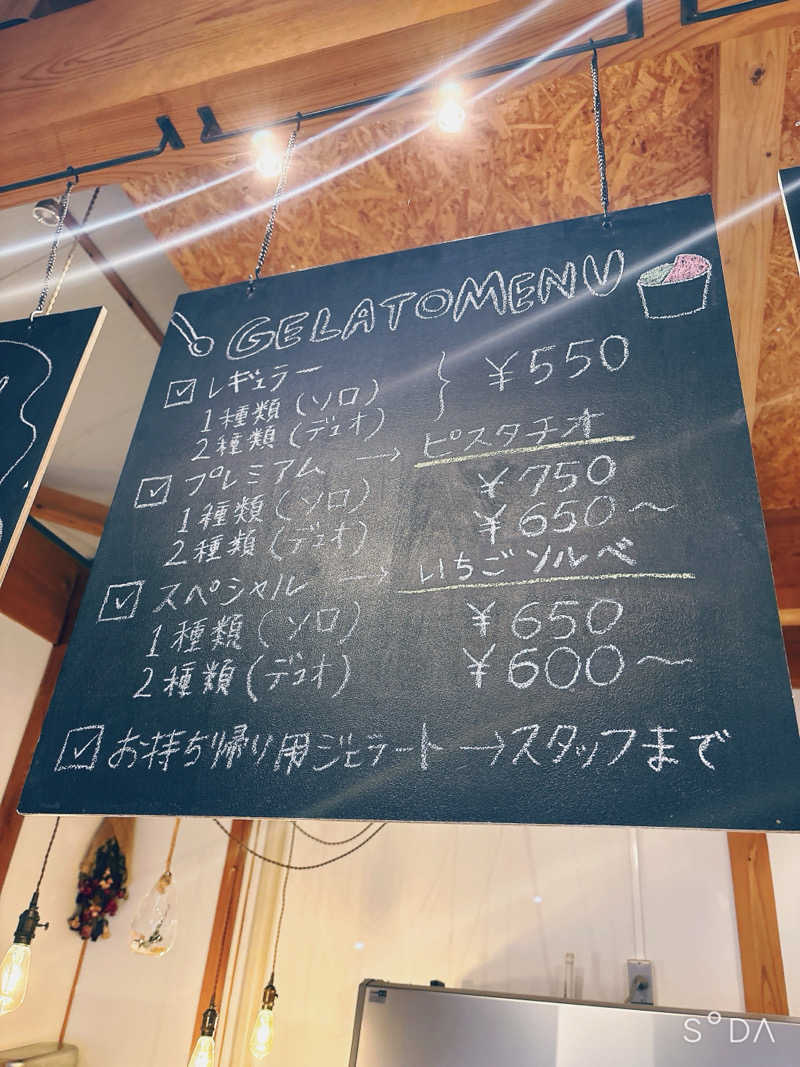 GELATO MENU
☑ レギュラー
1種類(ソロ)
2種類(デュオ)
} ¥550
☑ プレミアム → ピスタチオ
1種類(ソロ) ¥750
2種類(デュオ) ¥650〜
☑ スペシャル → いちごソルベ
1種類(ソロ) ¥650
2種類(デュオ) ¥600〜
☑ お持ち帰り用ジェラート→スタッフまで
S°DA